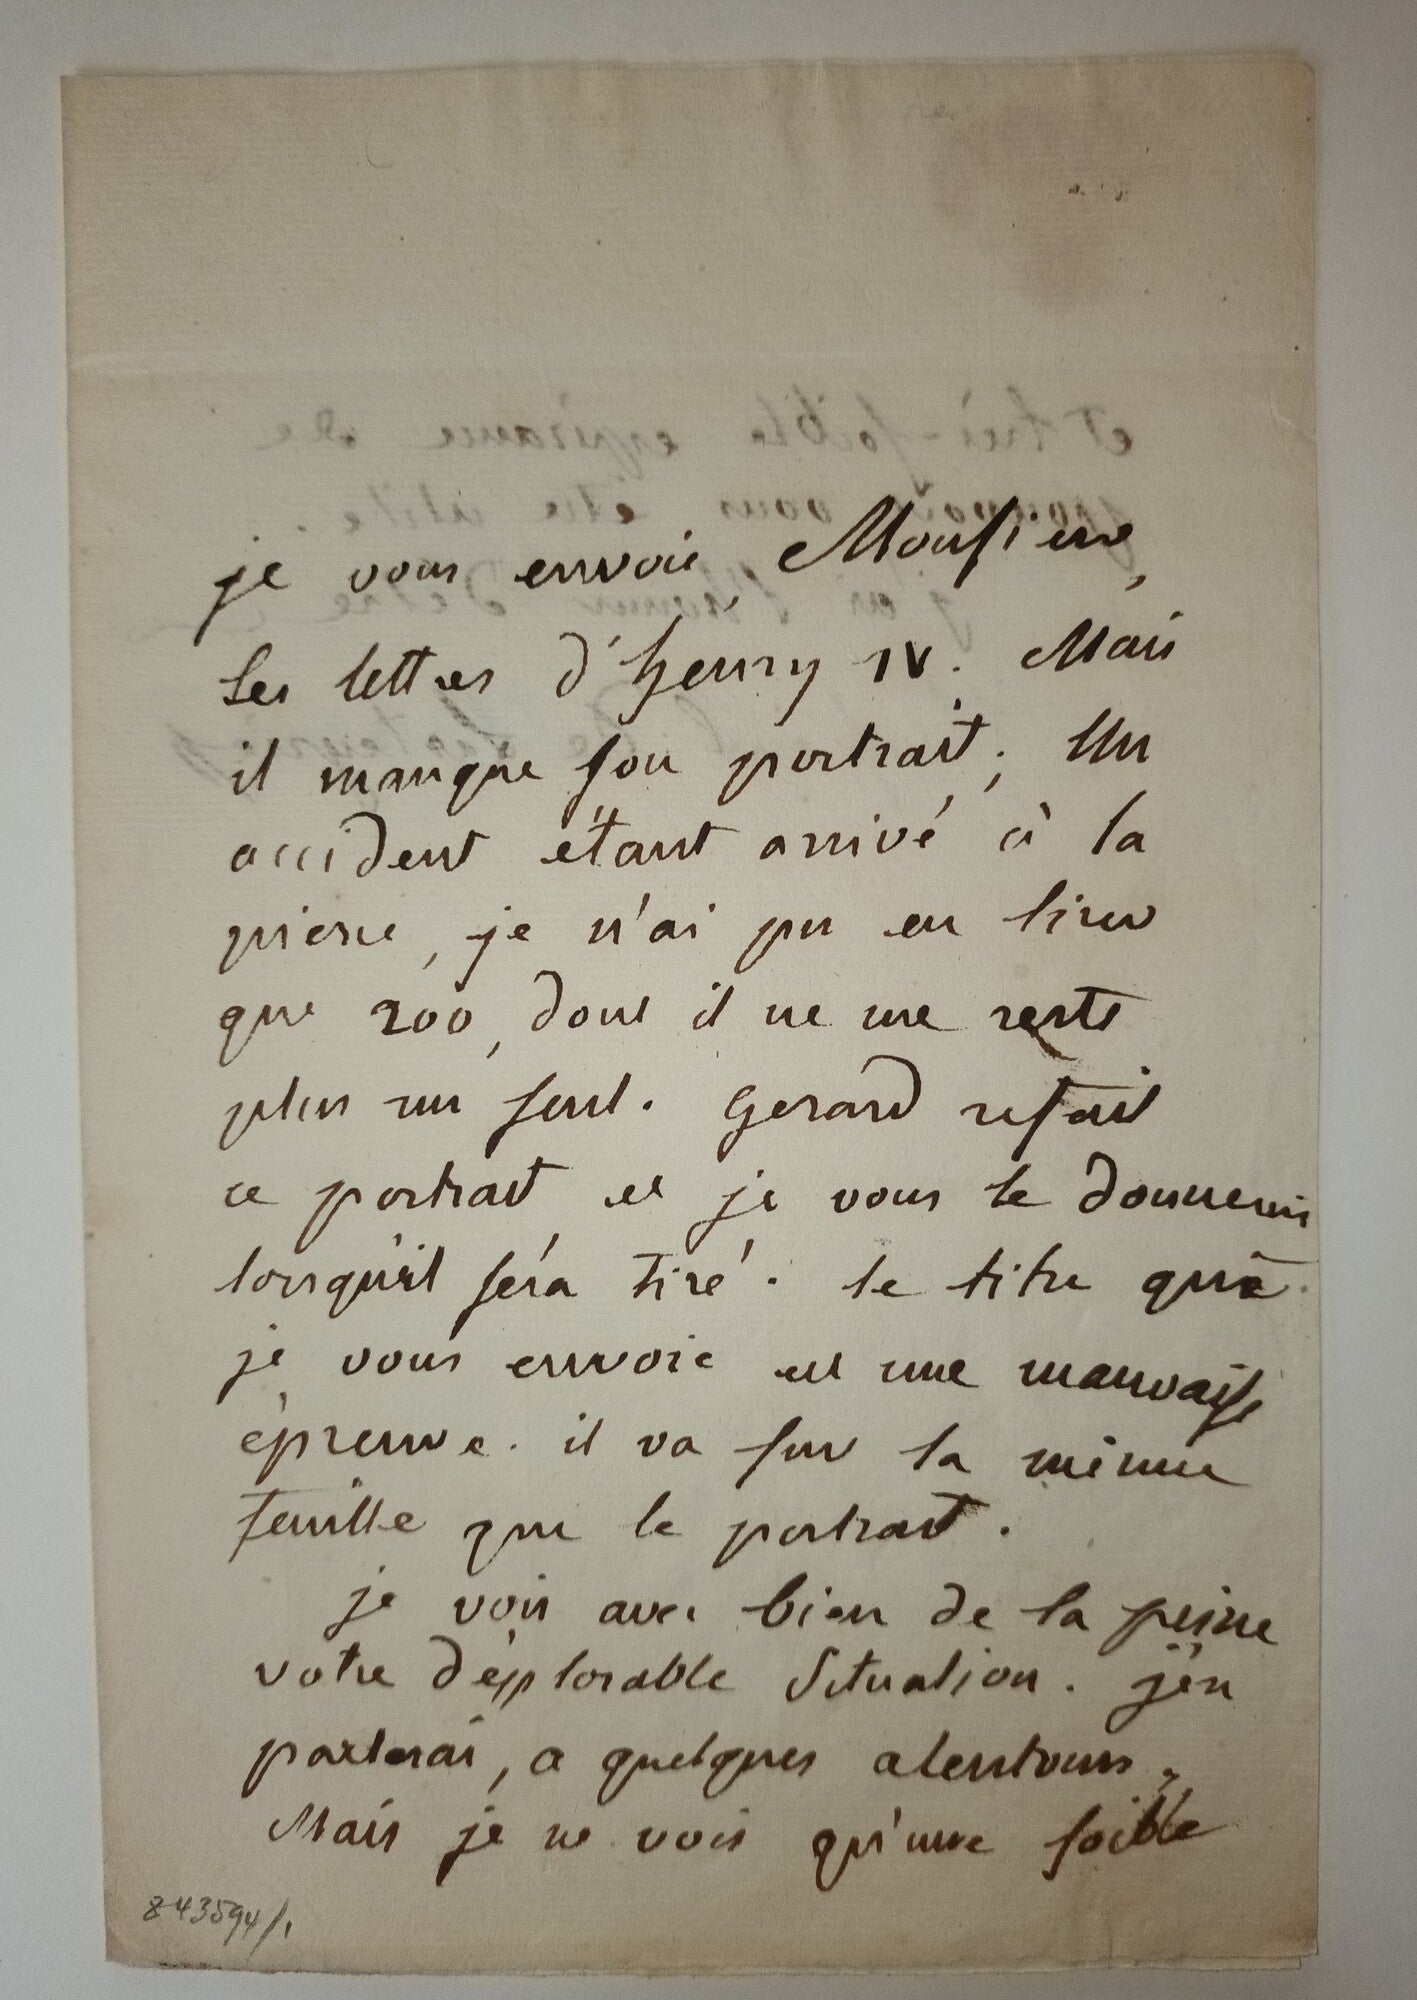 je vous envoie, Monsieur,
les lettres d'henry IV. Mais
il manque son portrait; Un
accident étant arrivé à la
pierre, je n'ai pu en tirer
que 200, dont il ne me reste
plus un seul. Gerard refait
ce portrait et je vous le donnerai
lorsqu'il séra tiré. le titre que
je vous envoie est une mauvaise
épreuve. il va sur la même
feuille que le portrait.
je vois avec bien de la peine
votre déplorable Situation. j'en
parlerai, a quelques alentours,
Mais je ne vois qu'une foible
843594/1